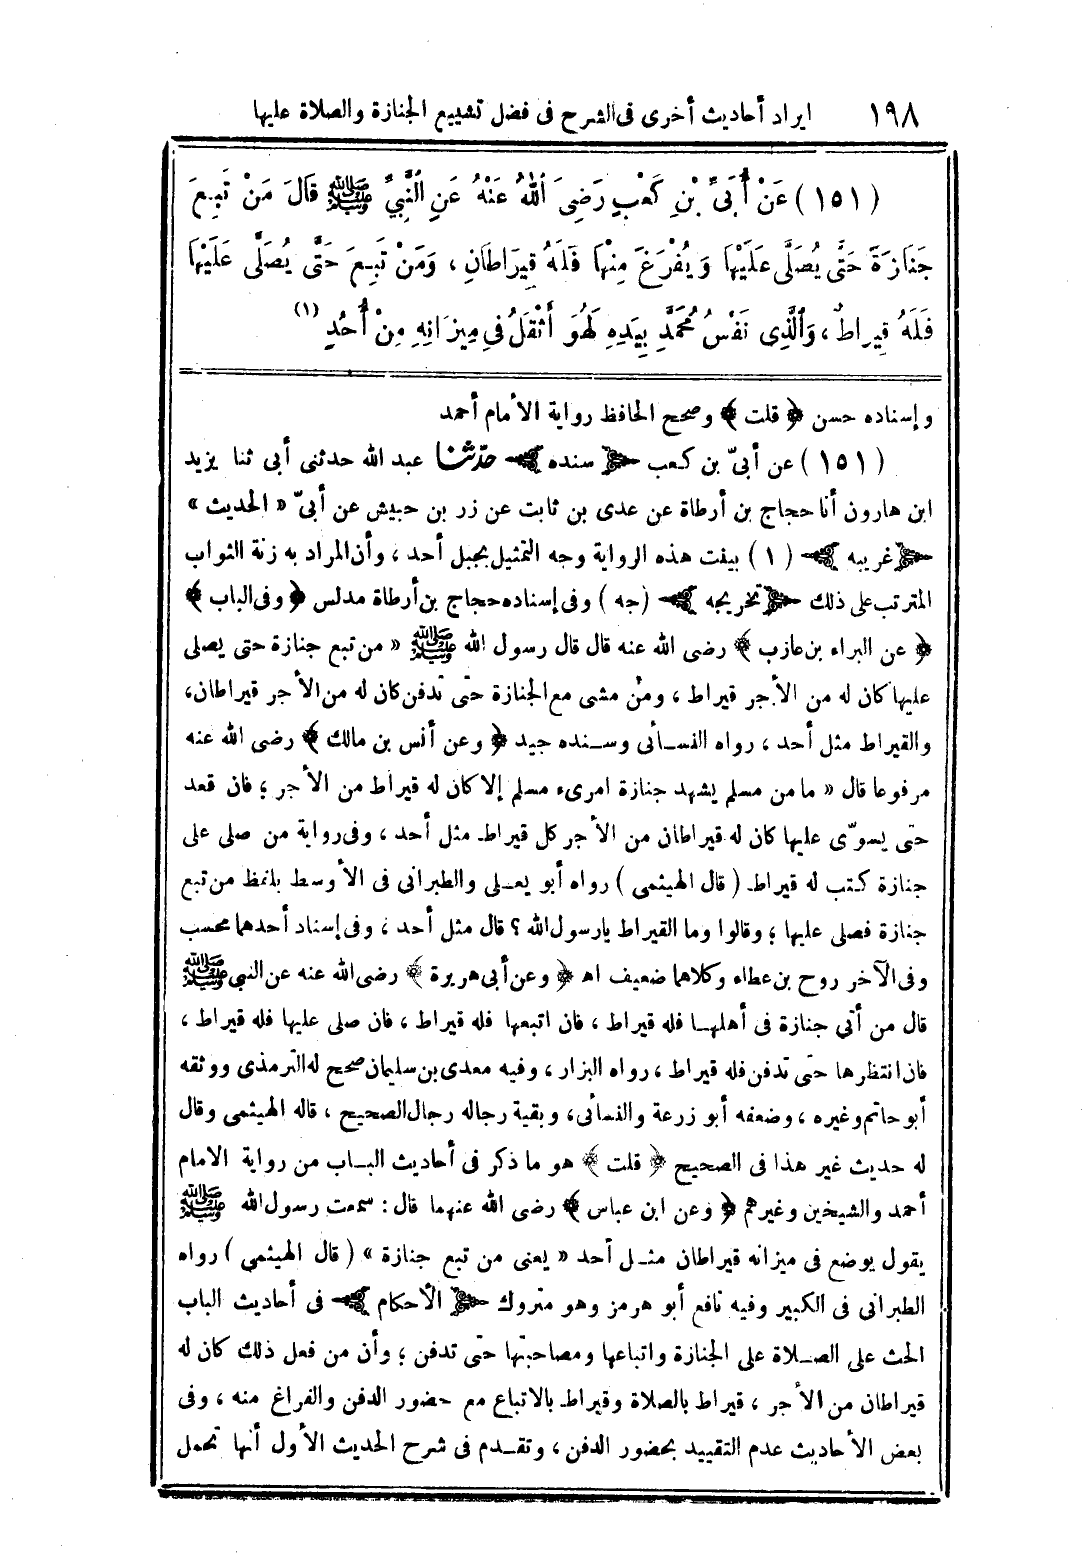 ١٩٨ ايراد أحاديث أخرى في الشرح في فضل تشييع الجنازة والصلاة عليها
(١٥١) عَنْ أُبَىِّ بْنِ كَعْبٍ رَضِىَ ٱللهُ عَنْهُ عَنِ ٱلنَّبِيِّ ﷺ قَالَ مَنْ تَبِعَ
جَنَازَةً حَتَّى يُصَلَّى عَلَيْهَا وَيُفْرَغَ مِنْهَا فَلَهُ قِيرَاطَانِ، وَمَنْ تَبِعَ حَتَّى يُصَلَّى عَلَيْهَا
فَلَهُ قِيرَاطٌ، وَٱلَّذِى نَفْسُ مُحَمَّدٍ بِيَدِهِ لَهُوَ أَثْقَلُ فِي مِيزَانِهِ مِنْ أُحُدٍ (١)
وإسناده حسن ﴿ قلت ﴾ وصحح الحافظ رواية الأمام أحمد
(١٥١) عن أبىّ بن كعب ﴿ سنده ﴾ حدّثنا عبد الله حدثنى أبى ثنا يزيد
ابن هارون أنا حجاج بن أرطاة عن عدى بن ثابت عن زر بن حبيش عن أبىّ « الحديث »
﴿ غريبه ﴾ (١) بينت هذه الرواية وجه التمثيل بجبل أحد، وأن المراد به زنة الثواب
المترتب على ذلك ﴿ تخريجه ﴾ (جه) وفى إسناده حجاج بن أرطاة مدلس ﴿ وفى الباب ﴾
﴿ عن البراء بن عازب ﴾ رضى الله عنه قال قال رسول الله ﷺ « من تبع جنازة حتى يصلى
عليها كان له من الأجر قيراط، ومن مشى مع الجنازة حتى تدفن كان له من الأجر قيراطان،
والقيراط مثل أحد، رواه النسائى وسنده جيد ﴿ وعن أنس بن مالك ﴾ رضى الله عنه
مرفوعا قال « ما من مسلم يشهد جنازة امرىء مسلم إلا كان له قيراط من الأجر؛ فان قعد
حتى يسوّى عليها كان له قيراطان من الأجر كل قيراط مثل أحد، وفى رواية من صلى على
جنازة كتب له قيراط (قال الهيثمى) رواه أبو يعلى والطبرانى فى الأوسط بلفظ من تبع
جنازة فصلى عليها؛ وقالوا وما القيراط يارسول الله؟ قال مثل أحد، وفى إسناد أحدهما محسب
وفى الآخر روح بن عطاء وكلاهما ضعيف اهـ ﴿ وعن أبى هريرة ﴾ رضى الله عنه عن النبى ﷺ
قال من أتى جنازة فى أهلهـا فله قيراط، فان اتبعها فله قيراط، فان صلى عليها فله قيراط،
فان انتظرها حتى تدفن فله قيراط، رواه البزار، وفيه معدى بن سليمان صحح له الترمذى ووثقه
أبو حاتم وغيره، وضعفه أبو زرعة والنسائى، وبقية رجاله رجال الصحيح، قاله الهيثمى وقال
له حديث غير هذا فى الصحيح ﴿ قلت ﴾ هو ما ذكر فى أحاديث البـاب من رواية الامام
أحمد والشيخين وغيرهم ﴿ وعن ابن عباس ﴾ رضى الله عنهما قال: سمعت رسول الله ﷺ
يقول يوضع فى ميزانه قيراطان مثـل أحد « يعنى من تبع جنازة » (قال الهيثمى) رواه
الطبرانى فى الكبير وفيه نافع أبو هرمز وهو متروك ﴿ الأحكام ﴾ فى أحاديث الباب
الحث على الصـلاة على الجنازة واتباعها ومصاحبتها حتى تدفن؛ وأن من فعل ذلك كان له
قيراطان من الأجر، قيراط بالصلاة وقيراط بالاتباع مع حضور الدفن والفراغ منه، وفى
بعض الأحاديث عدم التقييد بحضور الدفن، وتقـدم فى شرح الحديث الأول أنها تحمل